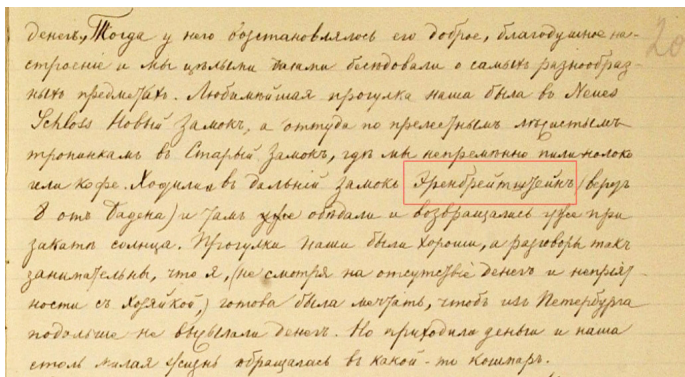 денегъ, Тогда у него возстановлялось его доброе, благодушное на-
строеніе и мы цѣлыми днями бесѣдовали о самыхъ разнообраз-
ныхъ предметахъ. Любимѣйшая прогулка наша была въ Neues
Schloss Новый Замокъ, а оттуда по прелестнымъ лѣсистымъ
тропинкамъ въ Старый Замокъ, гдѣ мы непремѣнно пили молоко
или кофе. Ходили въ дальній замокъ Эренбрейтштейнъ (верстъ
8 отъ Бадена) и тамъ уже обѣдали и возвращались уже при
закатѣ солнца. Прогулки наши были хороши, а разговоры такъ
занимательны, что я, (не смотря на отсутствіе денегъ и непріят-
ности съ хозяйкой,) готова была мечтать, чтобъ изъ Петербурга
подольше не высылали денегъ. Но приходили деньги и наша
столь милая жизнь обращалась въ какой-то кошмаръ.
20